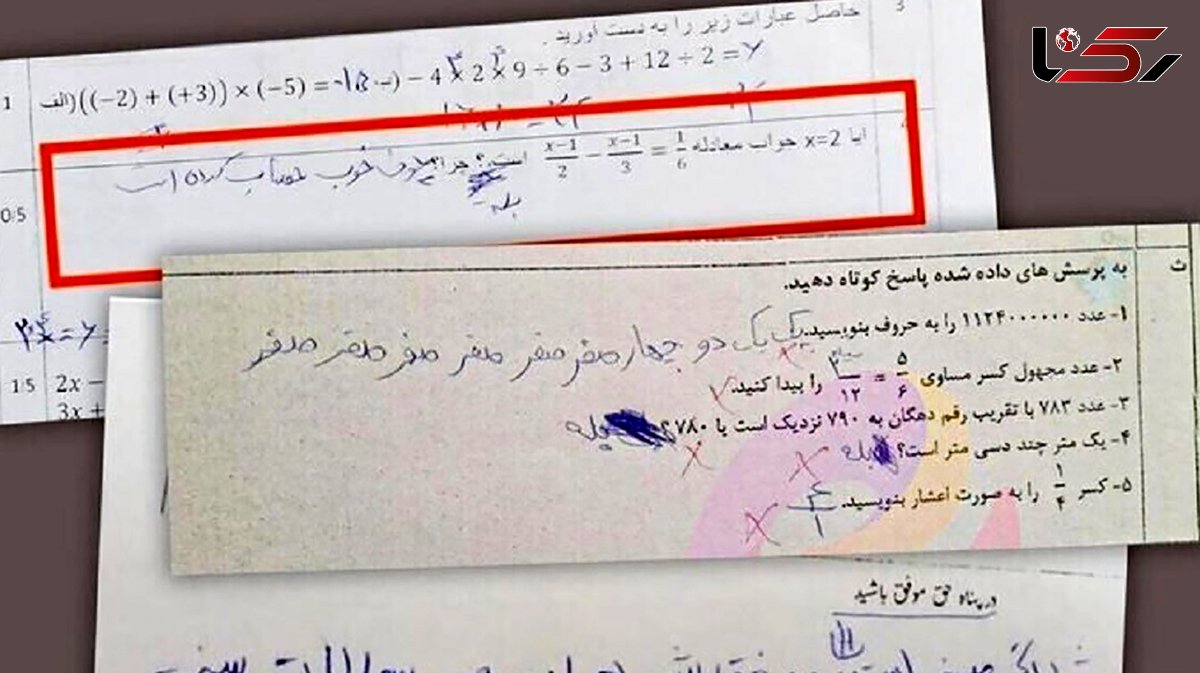 رکنا
3
حاصل عبارات زیر را به دست اورید .
1
الف) ((−2) + (+3)) × (−5) =
ب) − 4 × 2 × 9 ÷ 6 − 3 + 12 ÷ 2 =
ایا x=2 جواب معادله x−1/2 − x−1/3 = 1/6 است.؟ چرا؟ خوب حساب کردن است
بله
0/5
1/5
2x −
3x +
ث
به پرسش های داده شده پاسخ کوتاه دهید.
۱- عدد ۱۱۲۴۰۰۰۰۰۰ را به حروف بنویسید. یک یک دو چهار صفر صفر صفر صفر صفر صفر
۲- عدد مجهول کسر مساوی ۵/۶ = ۳/۱۲ را پیدا کنید.
۳- عدد ۷۸۳ با تقریب رقم دهگان به ۷۹۰ نزدیک است یا ۷۸۰؟ بله
۴- یک متر چند دسی متر است؟ بله
۵- کسر ۱/۴ را به صورت اعشار بنویسید. ۴/۱
در پناه حق موفق باشید